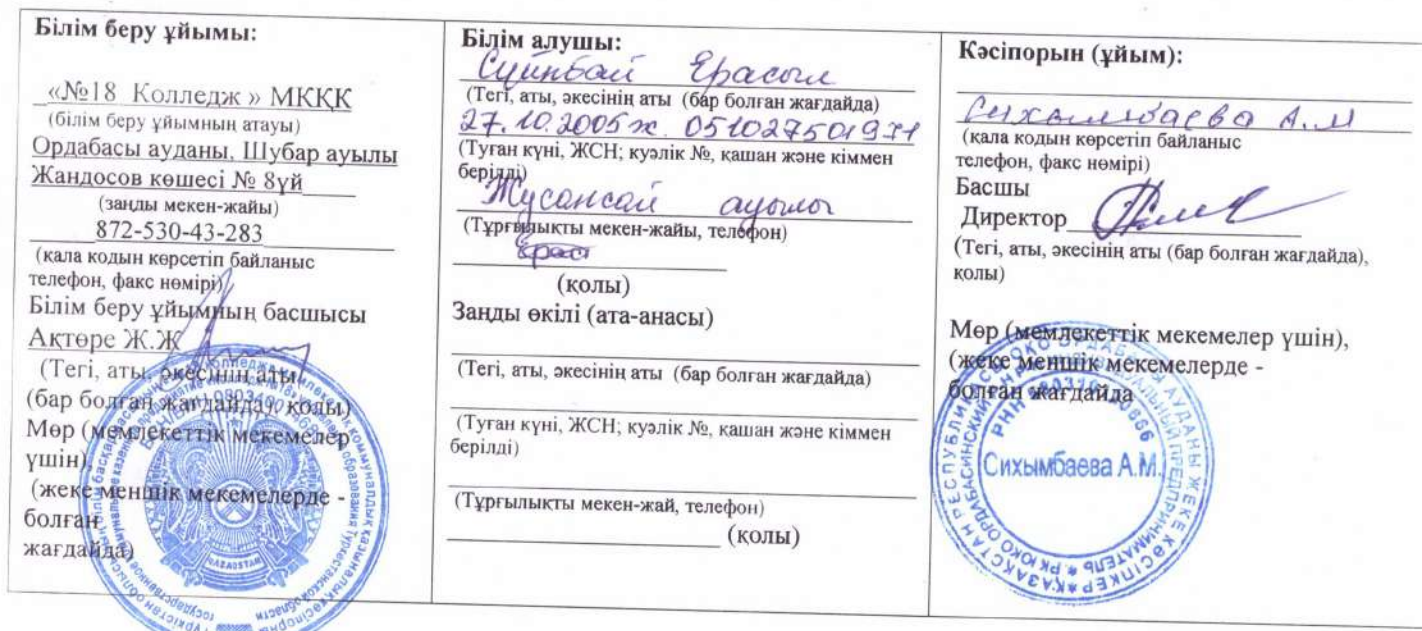 Білім беру ұйымы:
«№18 Колледж » МКҚК
(білім беру ұйымның атауы)
Ордабасы ауданы, Шубар ауылы
Жандосов көшесі № 8үй
(заңды мекен-жайы)
872-530-43-283
(қала кодын көрсетіп байланыс
телефон, факс нөмірі)
Білім беру ұйымның басшысы
Ақтөре Ж.Ж
(Тегі, аты, әкесінің аты
(бар болған жағдайда), қолы)
Мөр (мемлекеттік мекемелер
үшін),
(жеке меншік мекемелерде -
болған
жағдайда)
QAZAQSTAN
Білім алушы:
Сүйінбай Ерасыл
(Тегі, аты, әкесінің аты (бар болған жағдайда)
27.10.2005ж. 051027501971
(Туған күні, ЖСН; куәлік №, қашан және кіммен
берілді)
Жусансай ауылы
(Тұрғылықты мекен-жайы, телефон)
(қолы)
Заңды өкілі (ата-анасы)
(Тегі, аты, әкесінің аты (бар болған жағдайда)
(Туған күні, ЖСН; куәлік №, қашан және кіммен
берілді)
(Тұрғылықты мекен-жай, телефон)
(қолы)
Кәсіпорын (ұйым):
Сихымбаева А.М
(қала кодын көрсетіп байланыс
телефон, факс нөмірі)
Басшы
Директор
(Тегі, аты, әкесінің аты (бар болған жағдайда),
қолы)
Мөр (мемлекеттік мекемелер үшін),
(жеке меншік мекемелерде -
болған жағдайда
Сихымбаева А.М.